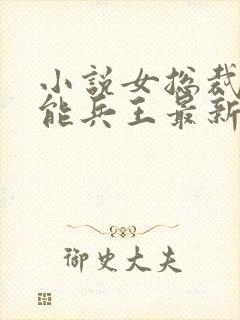 小说女总裁
能兵王最新
御史大夫